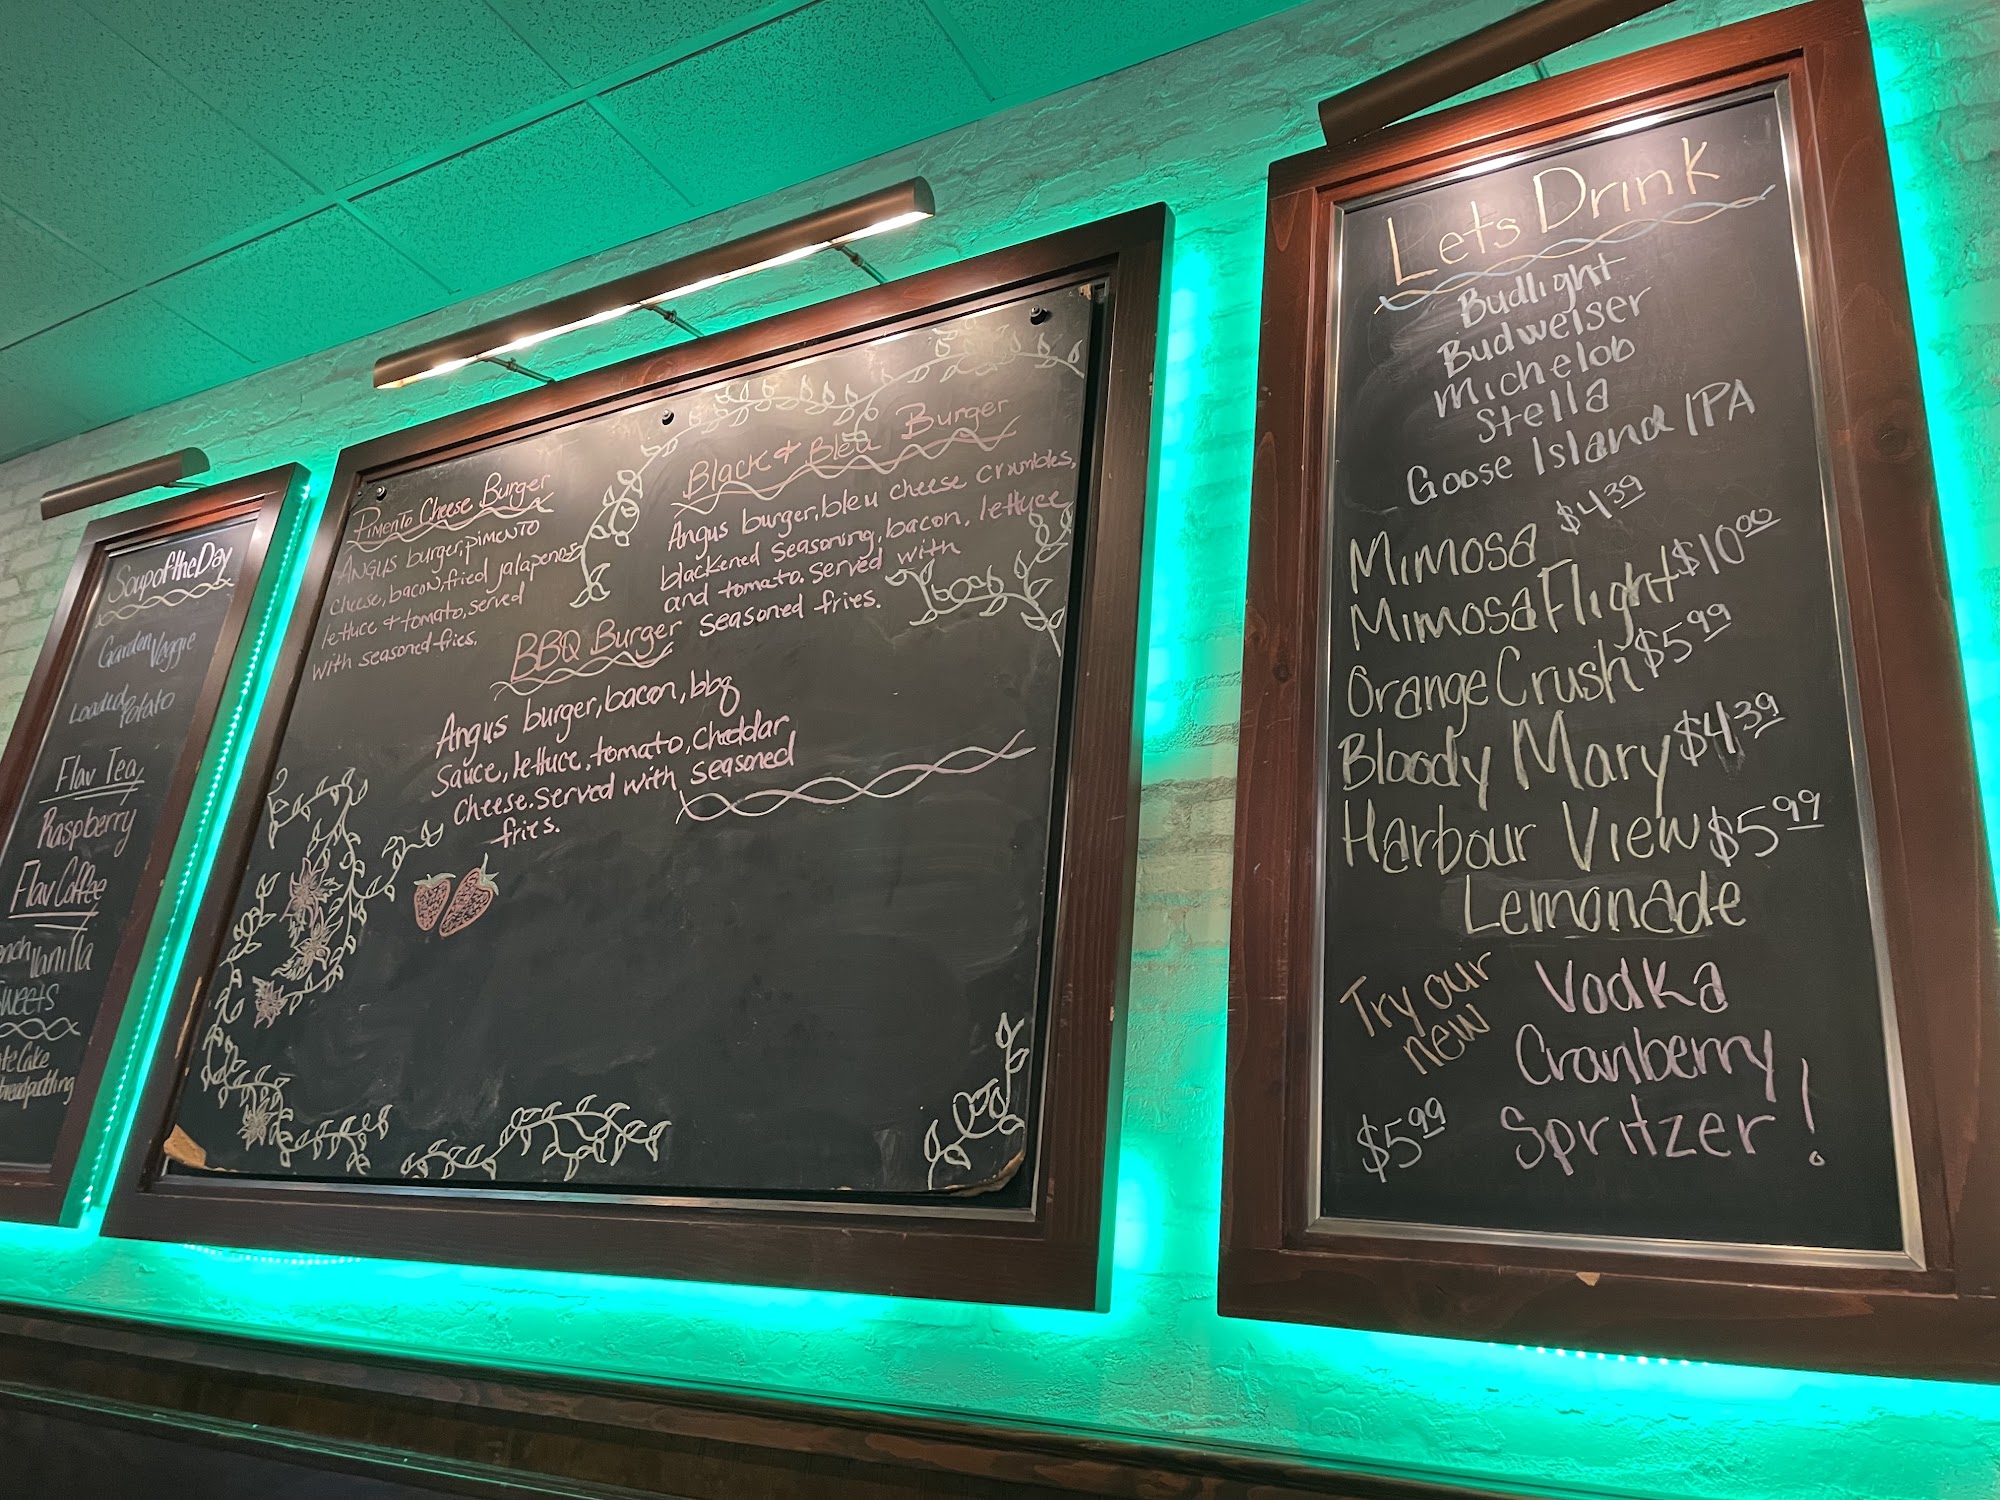 Soup of the Day
Garden Veggie
Loaded Potato
Flav Tea
Raspberry
Flav Coffee
Vanilla
Cake
Pimento Cheese Burger
Angus burger, pimento
cheese, bacon, fried jalapenos
lettuce & tomato, served
with seasoned fries.
Black & Bleu Burger
Angus burger, bleu cheese crumbles,
blackened seasoning, bacon, lettuce
and tomato. Served with
seasoned fries.
BBQ Burger
Angus burger, bacon, bbq
sauce, lettuce, tomato, cheddar
cheese. Served with seasoned
fries.
Lets Drink
Budlight
Budweiser
Michelob
Stella
Goose Island IPA
Mimosa $4.39
Mimosa Flight $10.00
Orange Crush $5.99
Bloody Mary $4.39
Harbour View $5.99
Lemonade
Try our
new
Vodka
Cranberry
Spritzer!
$5.99